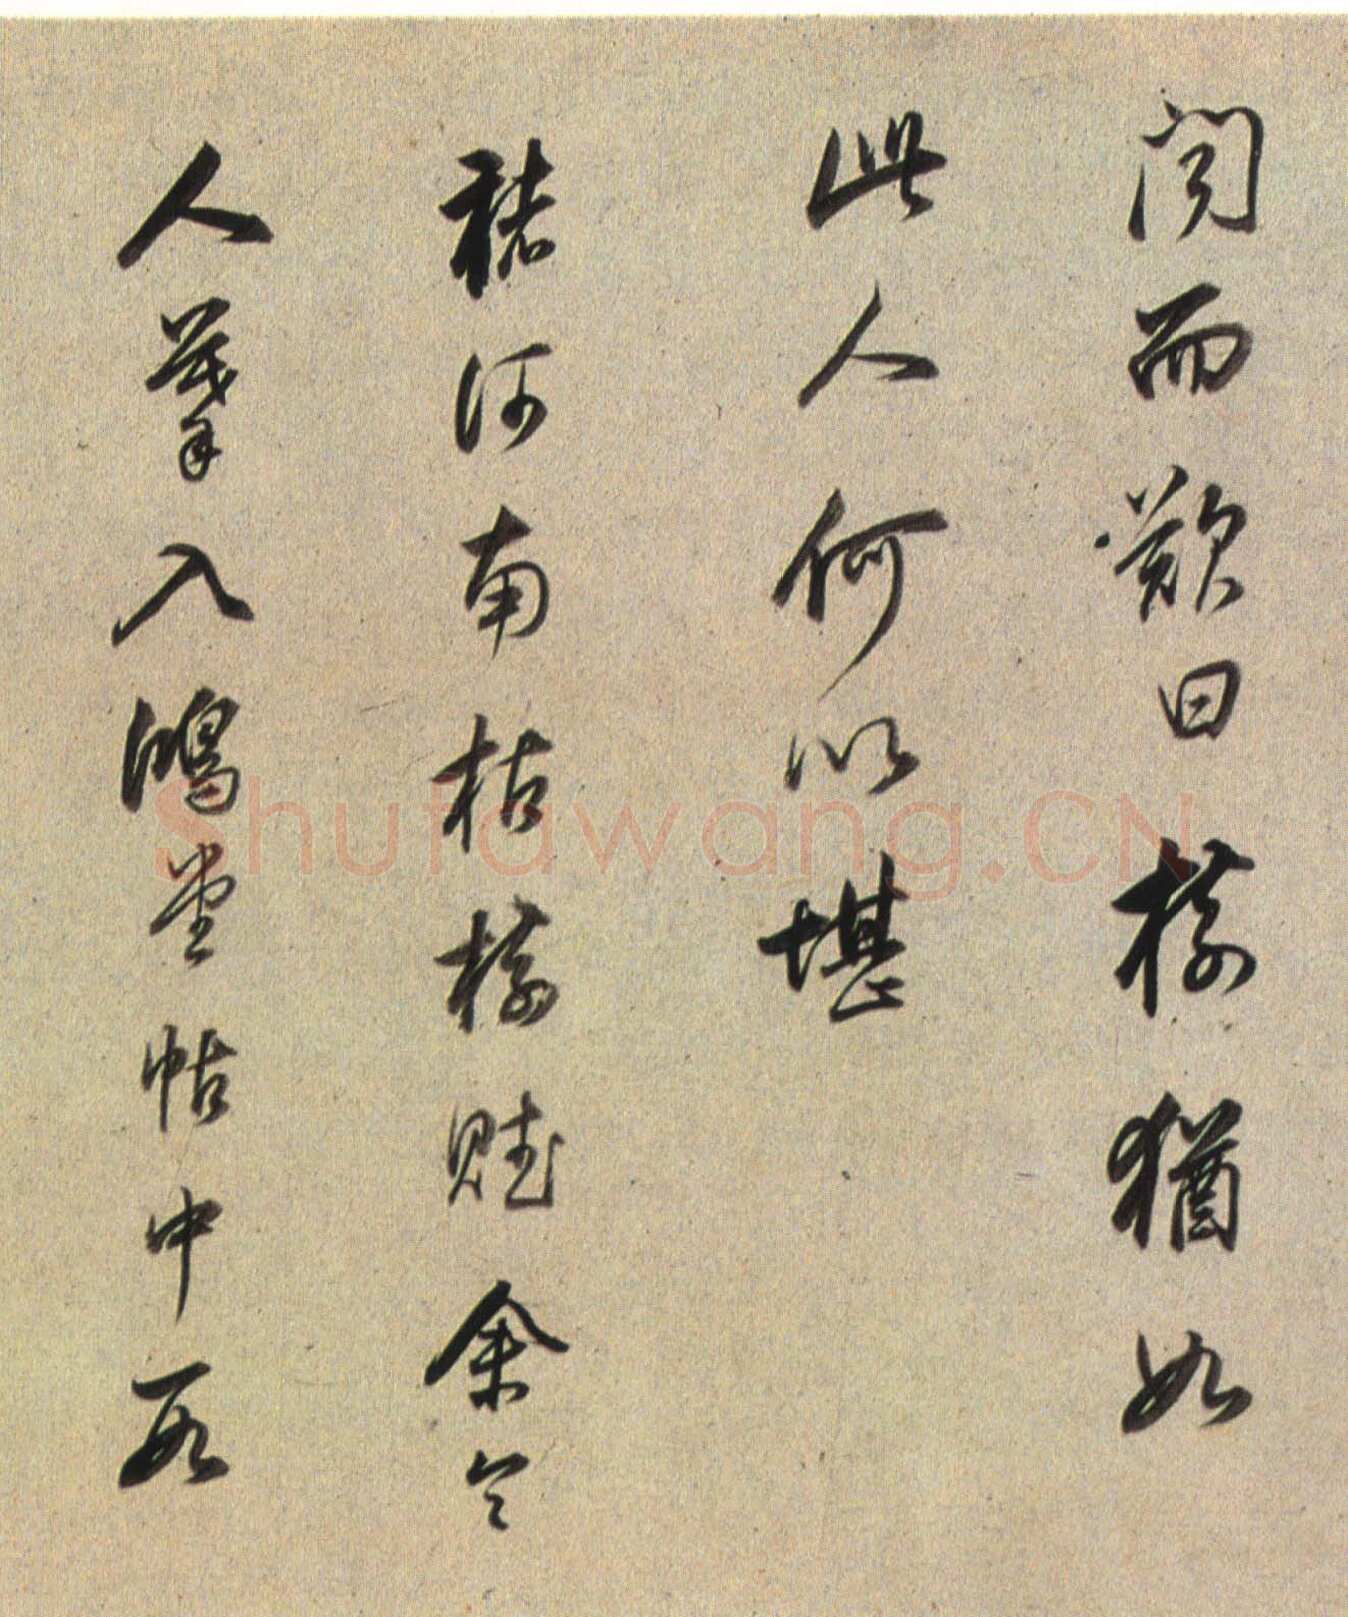 聞而歎曰樹猶如
此人何以堪
褚河南枯樹賦余令
人摹入鴻堂帖中
Shufawang.CN